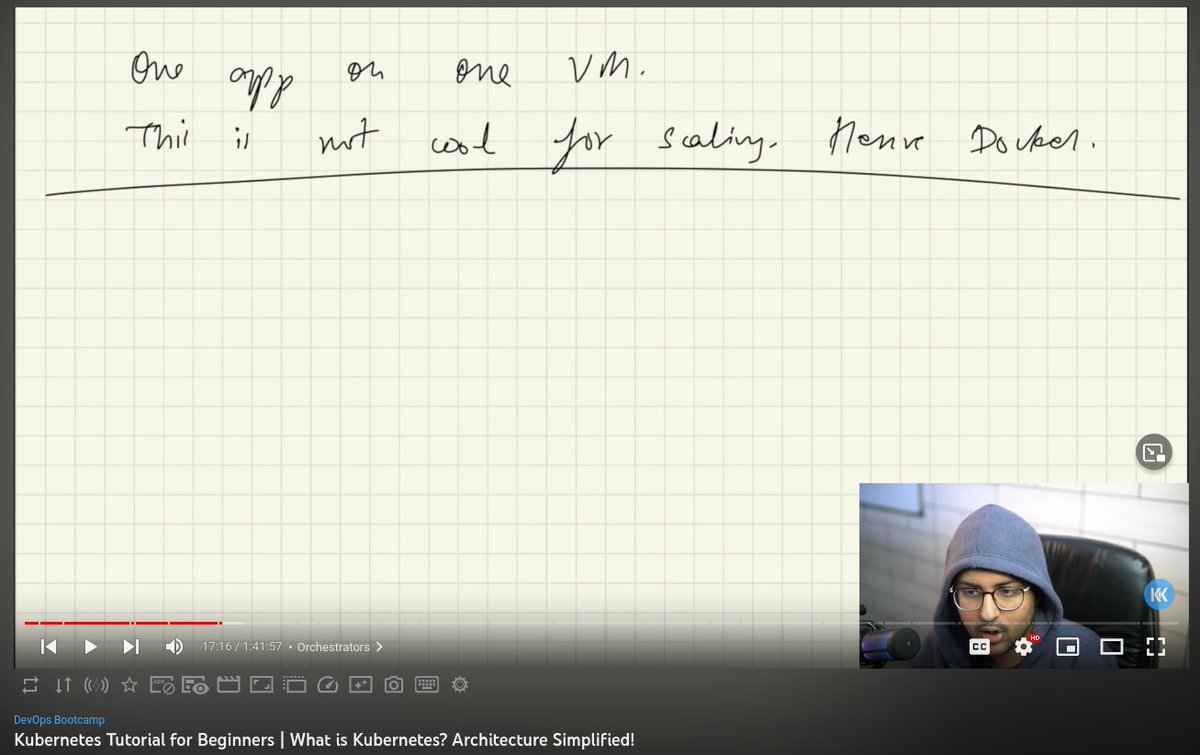 One app on one VM.
This is not cool for scaling. Hence Docker.
CC
HD
17:16 / 1:41:57 • Orchestrators
DevOps Bootcamp
Kubernetes Tutorial for Beginners | What is Kubernetes? Architecture Simplified!